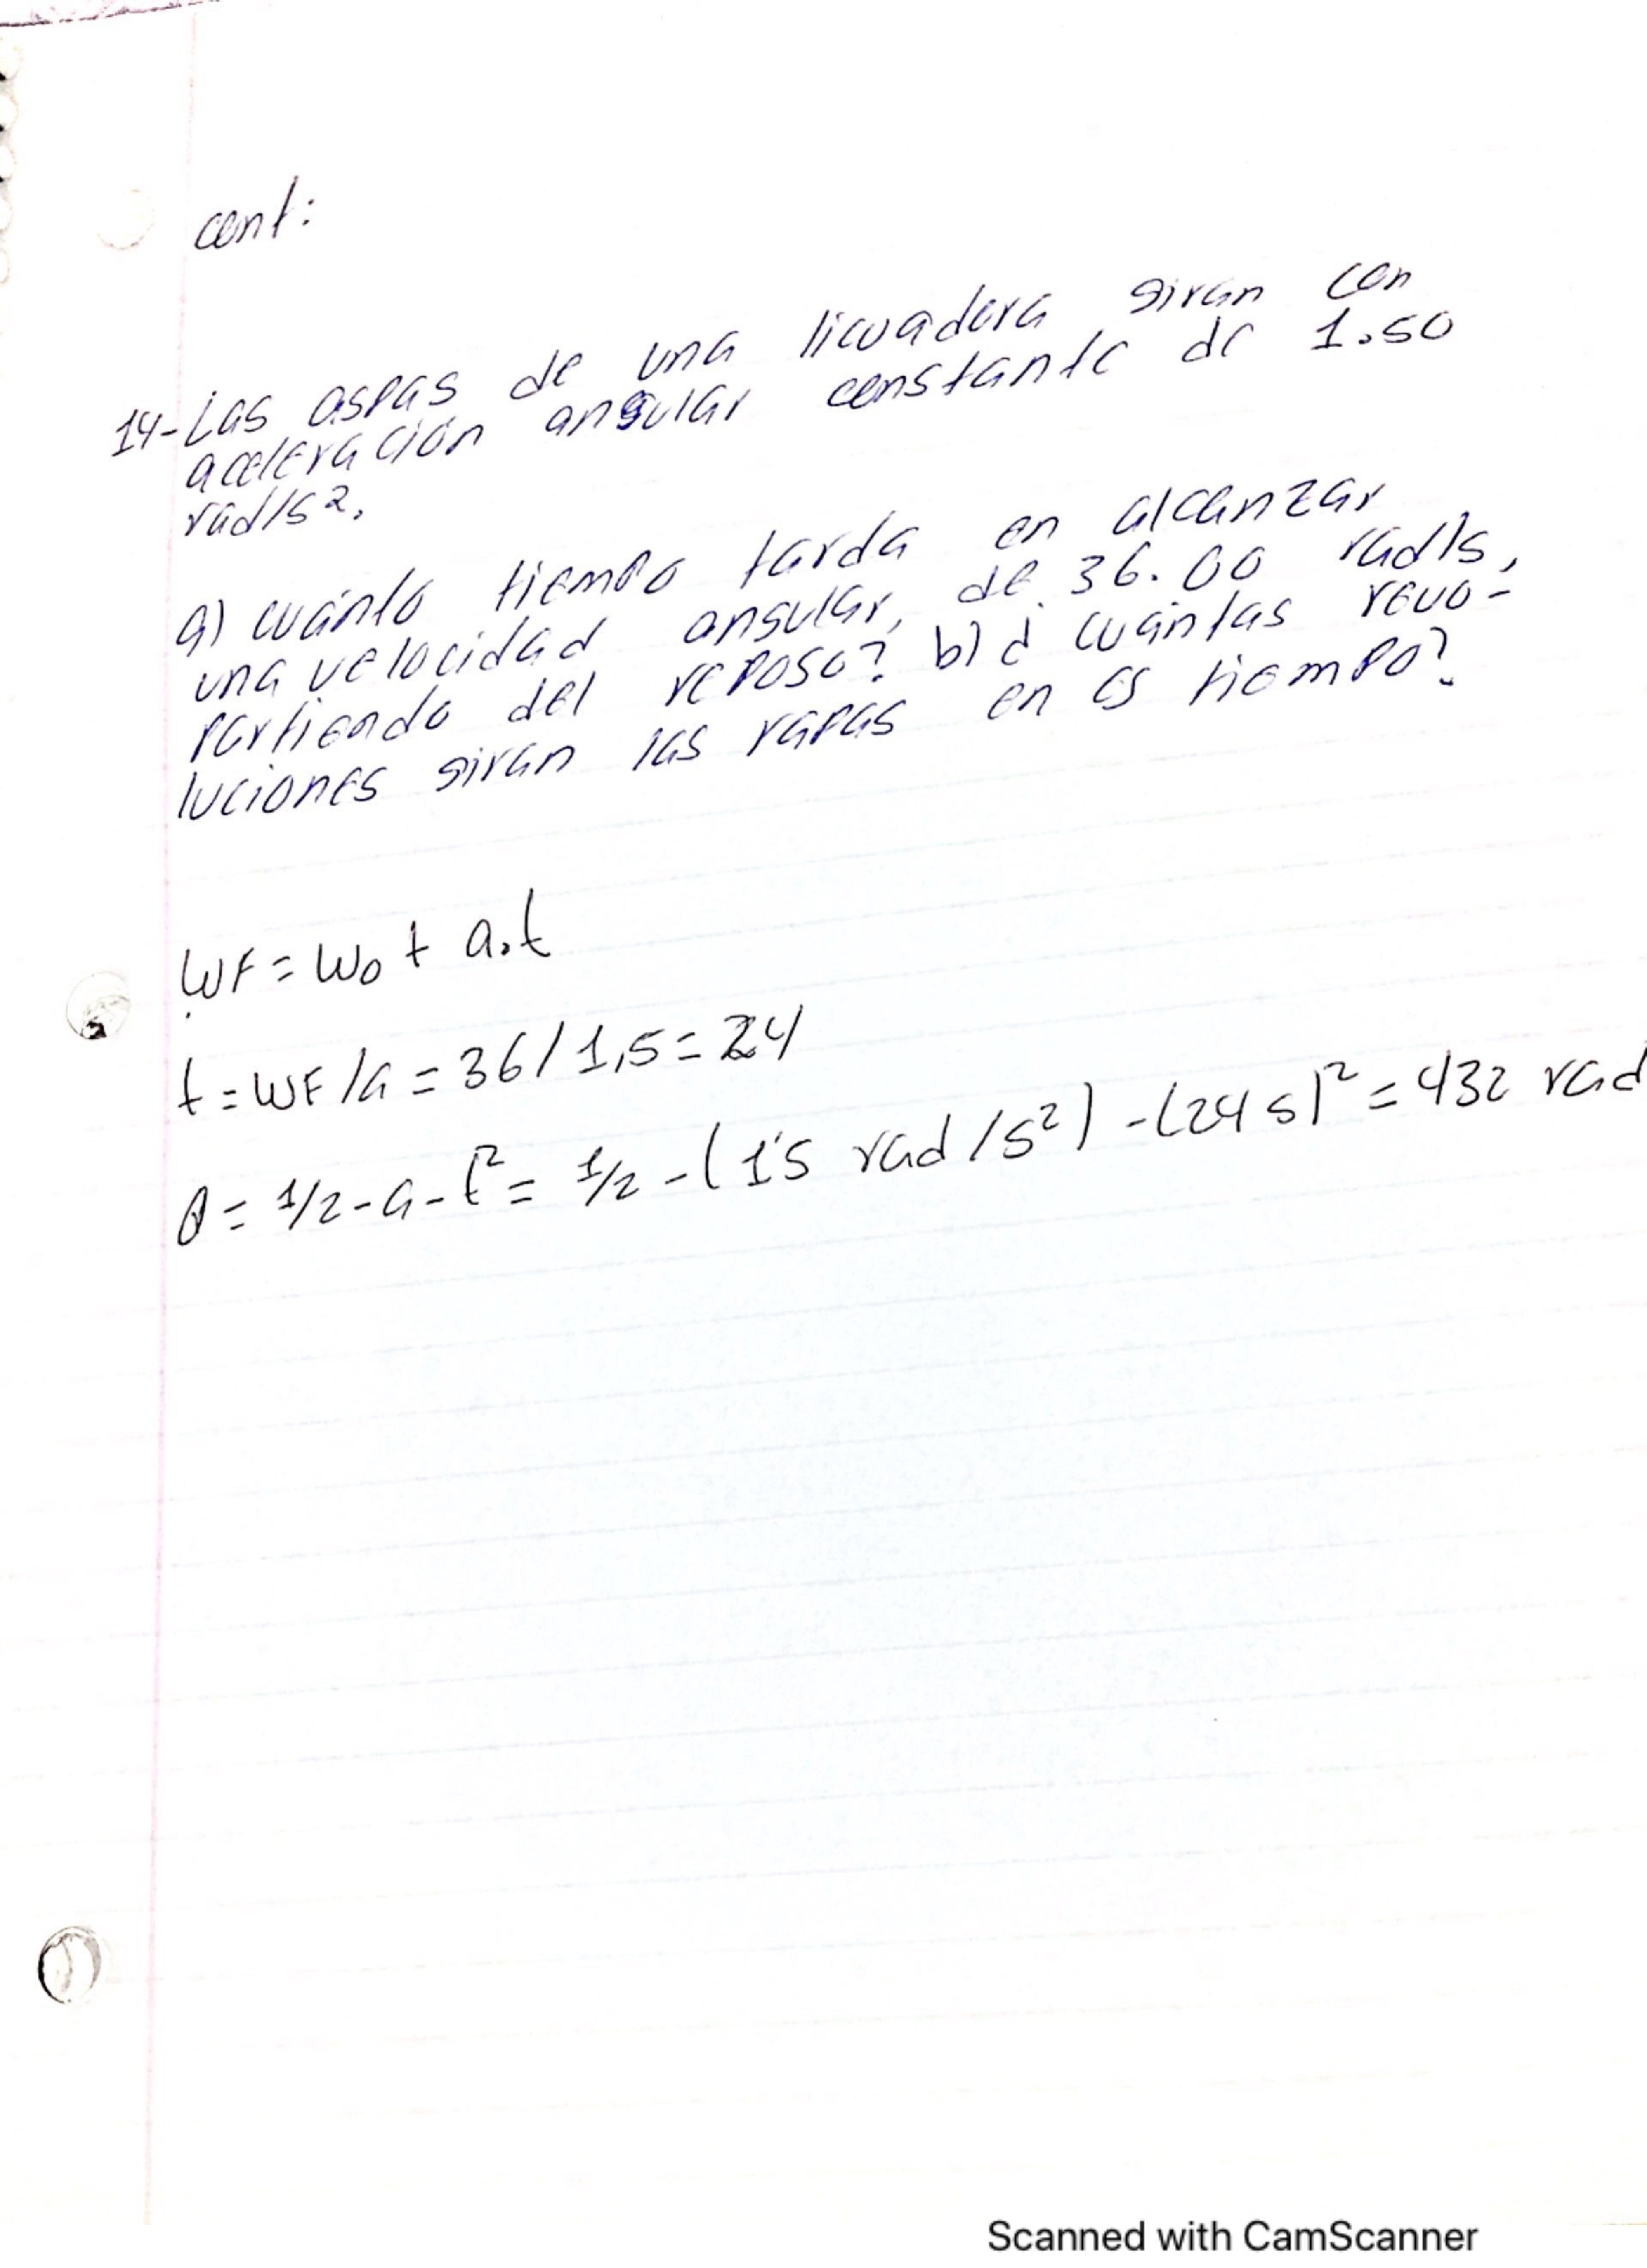 cont:
14-Las aspas de una licuadora giran con
aceleración angular constante de 1.50
rad/s².
a) cuánto tiempo tarda en alcanzar
una velocidad angular, de 36.00 rad/s,
partiendo del reposo? b) ¿ cuántas revo-
luciones giran las rapas en es tiempo?
WF = Wo + a.t
t = WF/a = 36/1,5 = 24
θ = 1/2-a-t² = 1/2-(1's rad/s²)-(24 s)² = 432 rad
Scanned with CamScanner